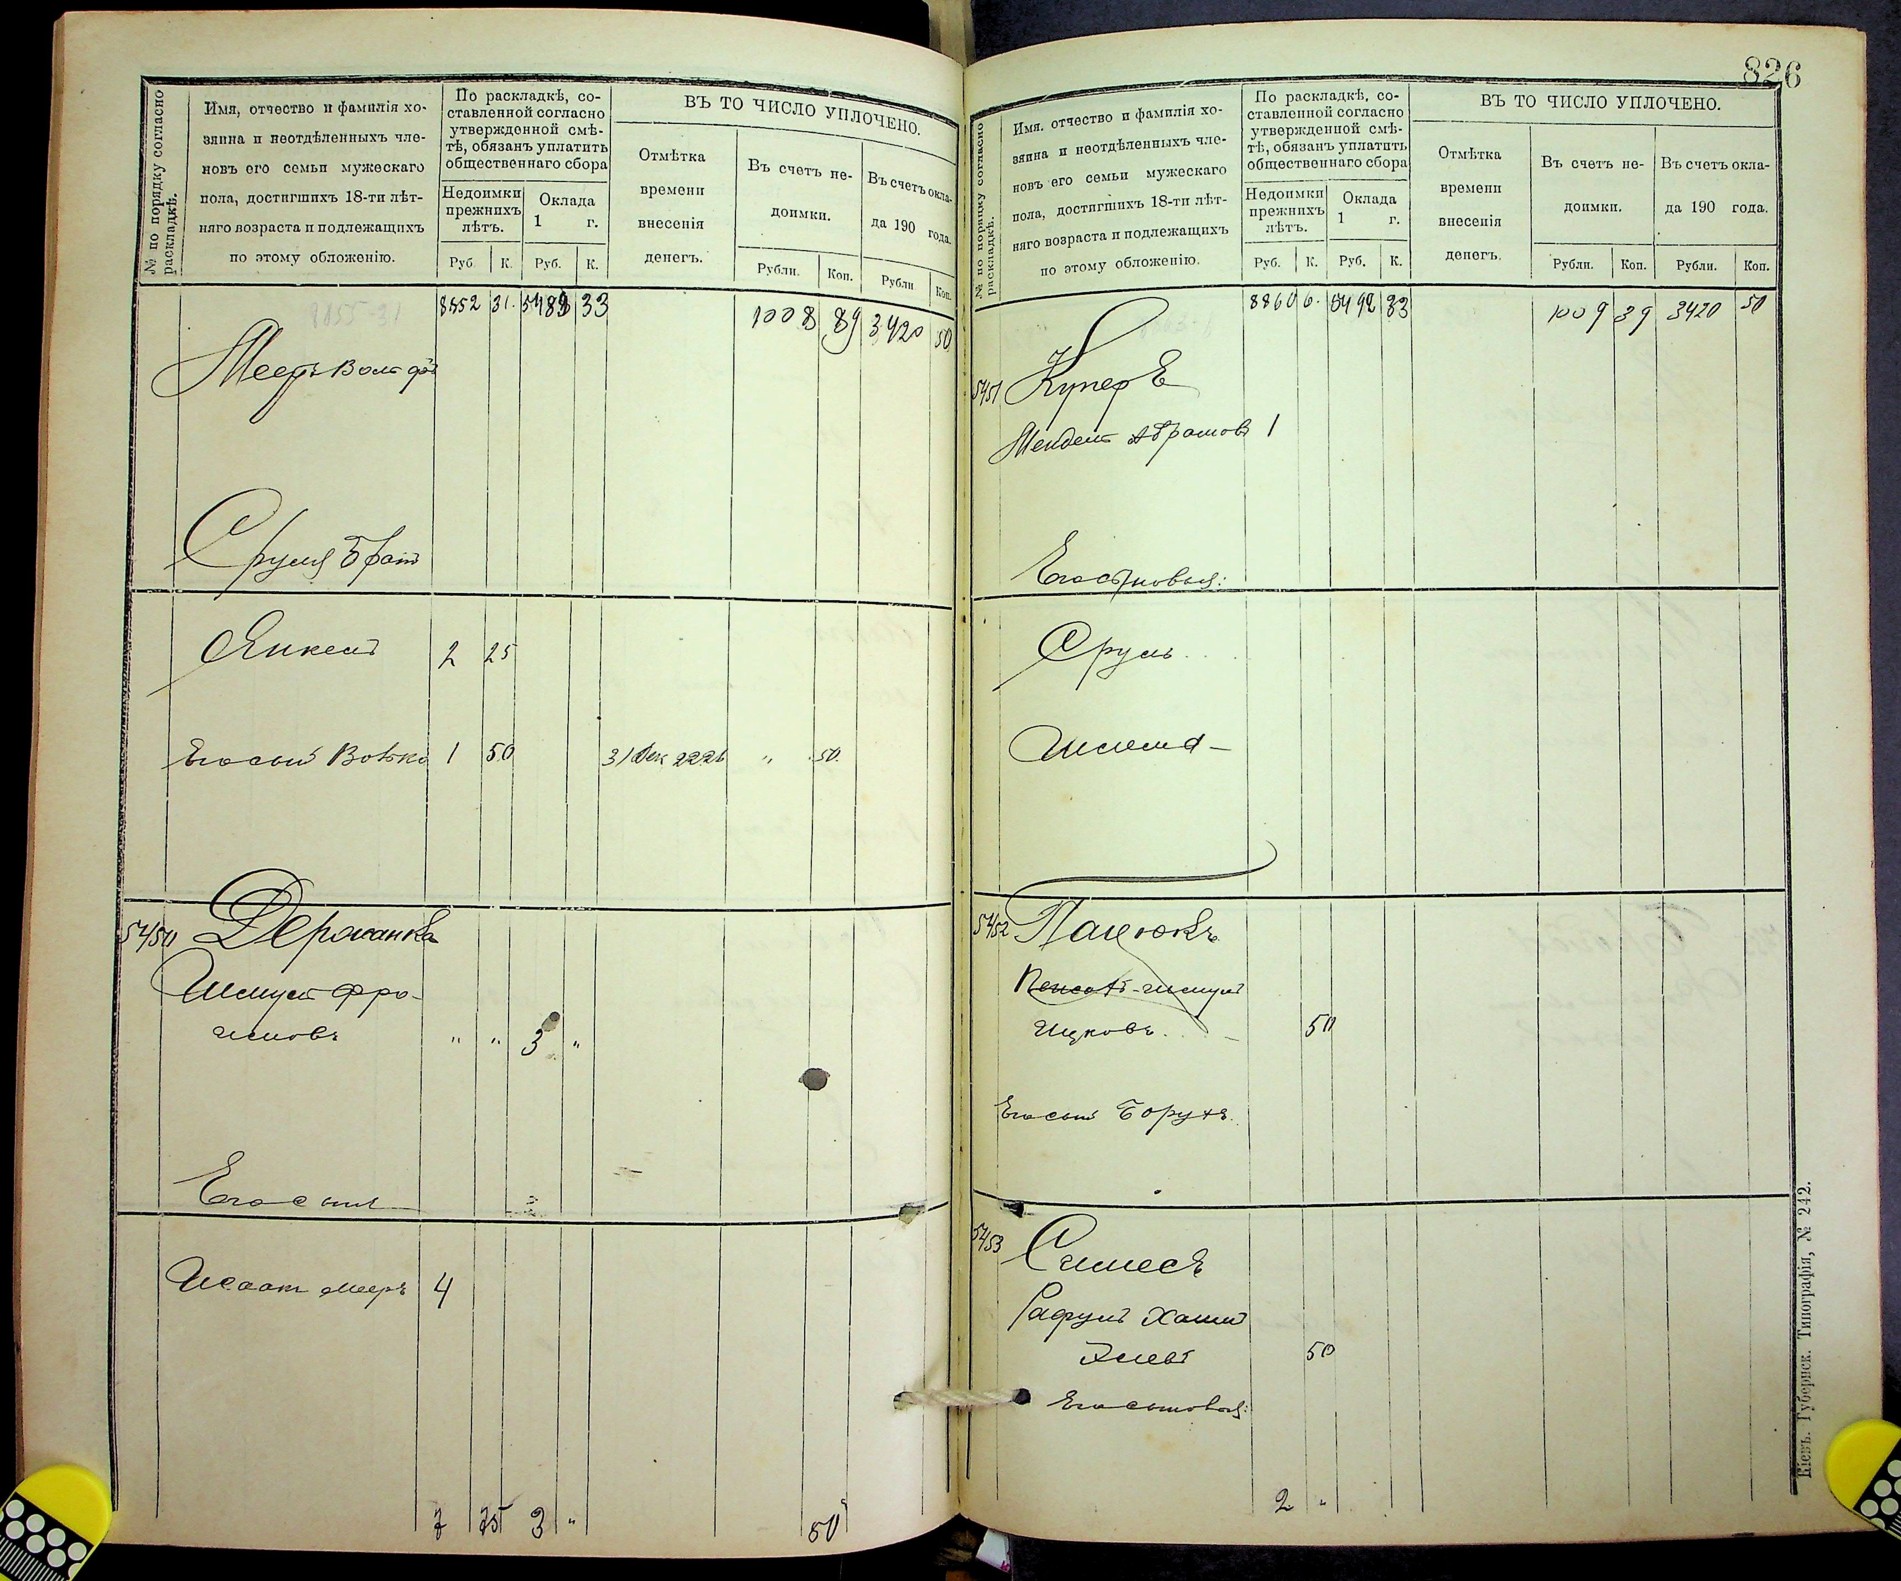 826
№ по порядку согласно раскладкѣ.
Имя, отчество и фамилія хо-
зяина и неотдѣленныхъ чле-
новъ его семьи мужескаго
пола, достигшихъ 18-ти лѣт-
няго возраста и подлежащихъ
по этому обложенію.
По раскладкѣ, со-
ставленной согласно
утвержденной смѣ-
тѣ, обязанъ уплатить
общественнаго сбора
Недоимки
прежнихъ
лѣтъ.
Оклада
1 г.
Руб. К. Руб. К.
ВЪ ТО ЧИСЛО УПЛОЧЕНО.
Отмѣтка
времени
внесенія
денегъ.
Въ счетъ не-
доимки.
Въ счетъ окла-
да 190 года.
Рубли. Коп. Рубли Коп.
8852 31. 33 1008 89 3420 50
Мееръ Вольфъ
Сруля братъ
Янкель 2 25
Его сынъ 1 50 31 Дек " 50.
5450 Держанка
Шмуль Фро-
имовъ " " 3 "
Его сынъ
Исаакъ Мееръ 4
7 75 3 " 50
№ по порядку согласно раскладкѣ.
Имя, отчество и фамилія хо-
зяина и неотдѣленныхъ чле-
новъ его семьи мужескаго
пола, достигшихъ 18-ти лѣт-
няго возраста и подлежащихъ
по этому обложенію.
По раскладкѣ, со-
ставленной согласно
утвержденной смѣ-
тѣ, обязанъ уплатить
общественнаго сбора
Недоимки
прежнихъ
лѣтъ.
Оклада
1 г.
Руб. К. Руб. К.
ВЪ ТО ЧИСЛО УПЛОЧЕНО.
Отмѣтка
времени
внесенія
денегъ.
Въ счетъ не-
доимки.
Въ счетъ окла-
да 190 года.
Рубли. Коп. Рубли. Коп.
8860 6. 5492 33 1009 39 3420 50
5451 Куперъ
Мендель Абрамовъ 1
Его сыновья:
Сруль
Шлема
5452 Пацюкъ
Шмуль
Ицковъ. 50
Его сынъ Борухъ.
5453 Симесъ
Рафулъ Хаим
50
Его сыновья:
2 "
Кіевъ. Губернск. Типографія, № 242.